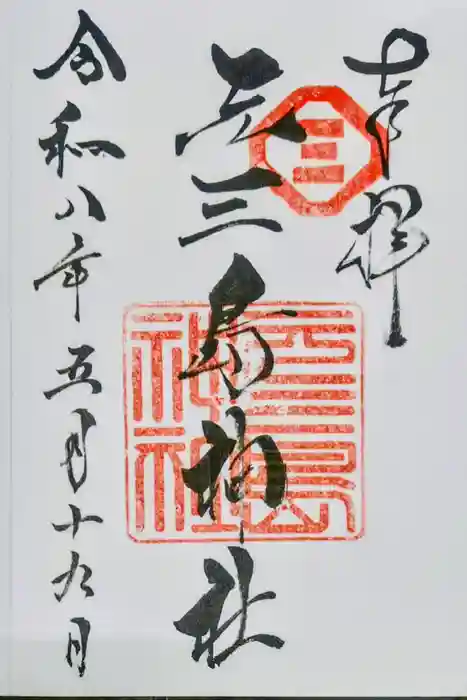 奉拝
三
元三島神社
元三島
神社
令和八年五月十九日